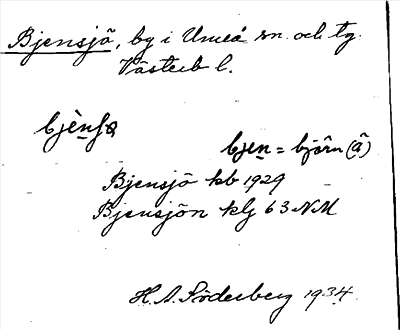 Bjensjö, by i Umeå sn. och tg.
Västerb l.
bjènʃø
bjen = björn (ä)
Bjensjö kb 1929
Bjensjön klj 63 NM
H. A. Söderberg 1934.